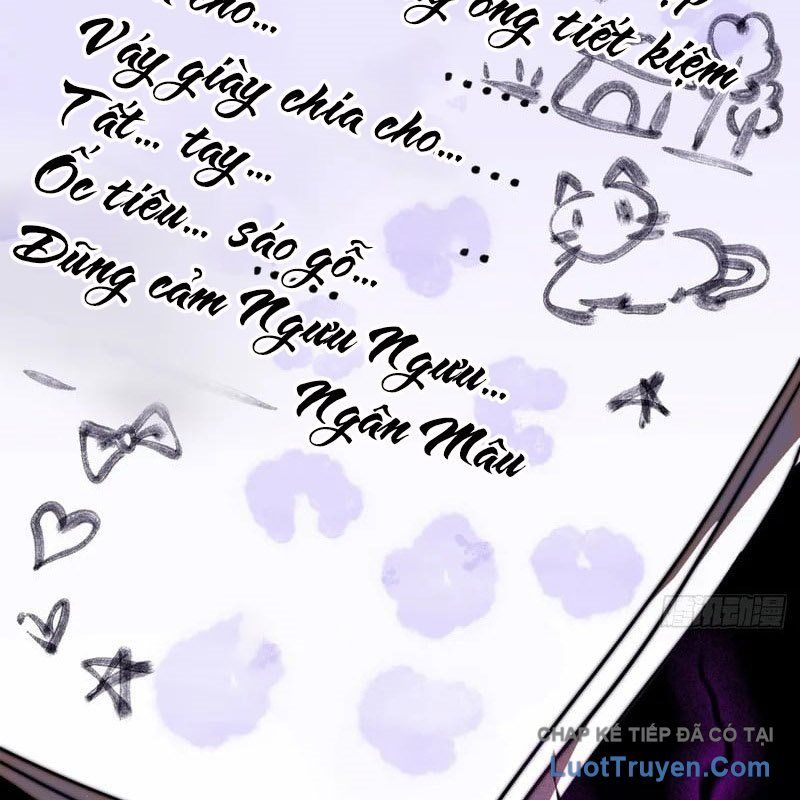 cho...
ống tiết kiệm
Váy giày chia cho...
Tất... tay...
Ốc tiêu... sáo gỗ...
Dũng cảm Ngưu Ngưu...
Ngân Mâu
腾讯动漫
CHAP KẾ TIẾP ĐÃ CÓ TẠI
LuotTruyen.Com